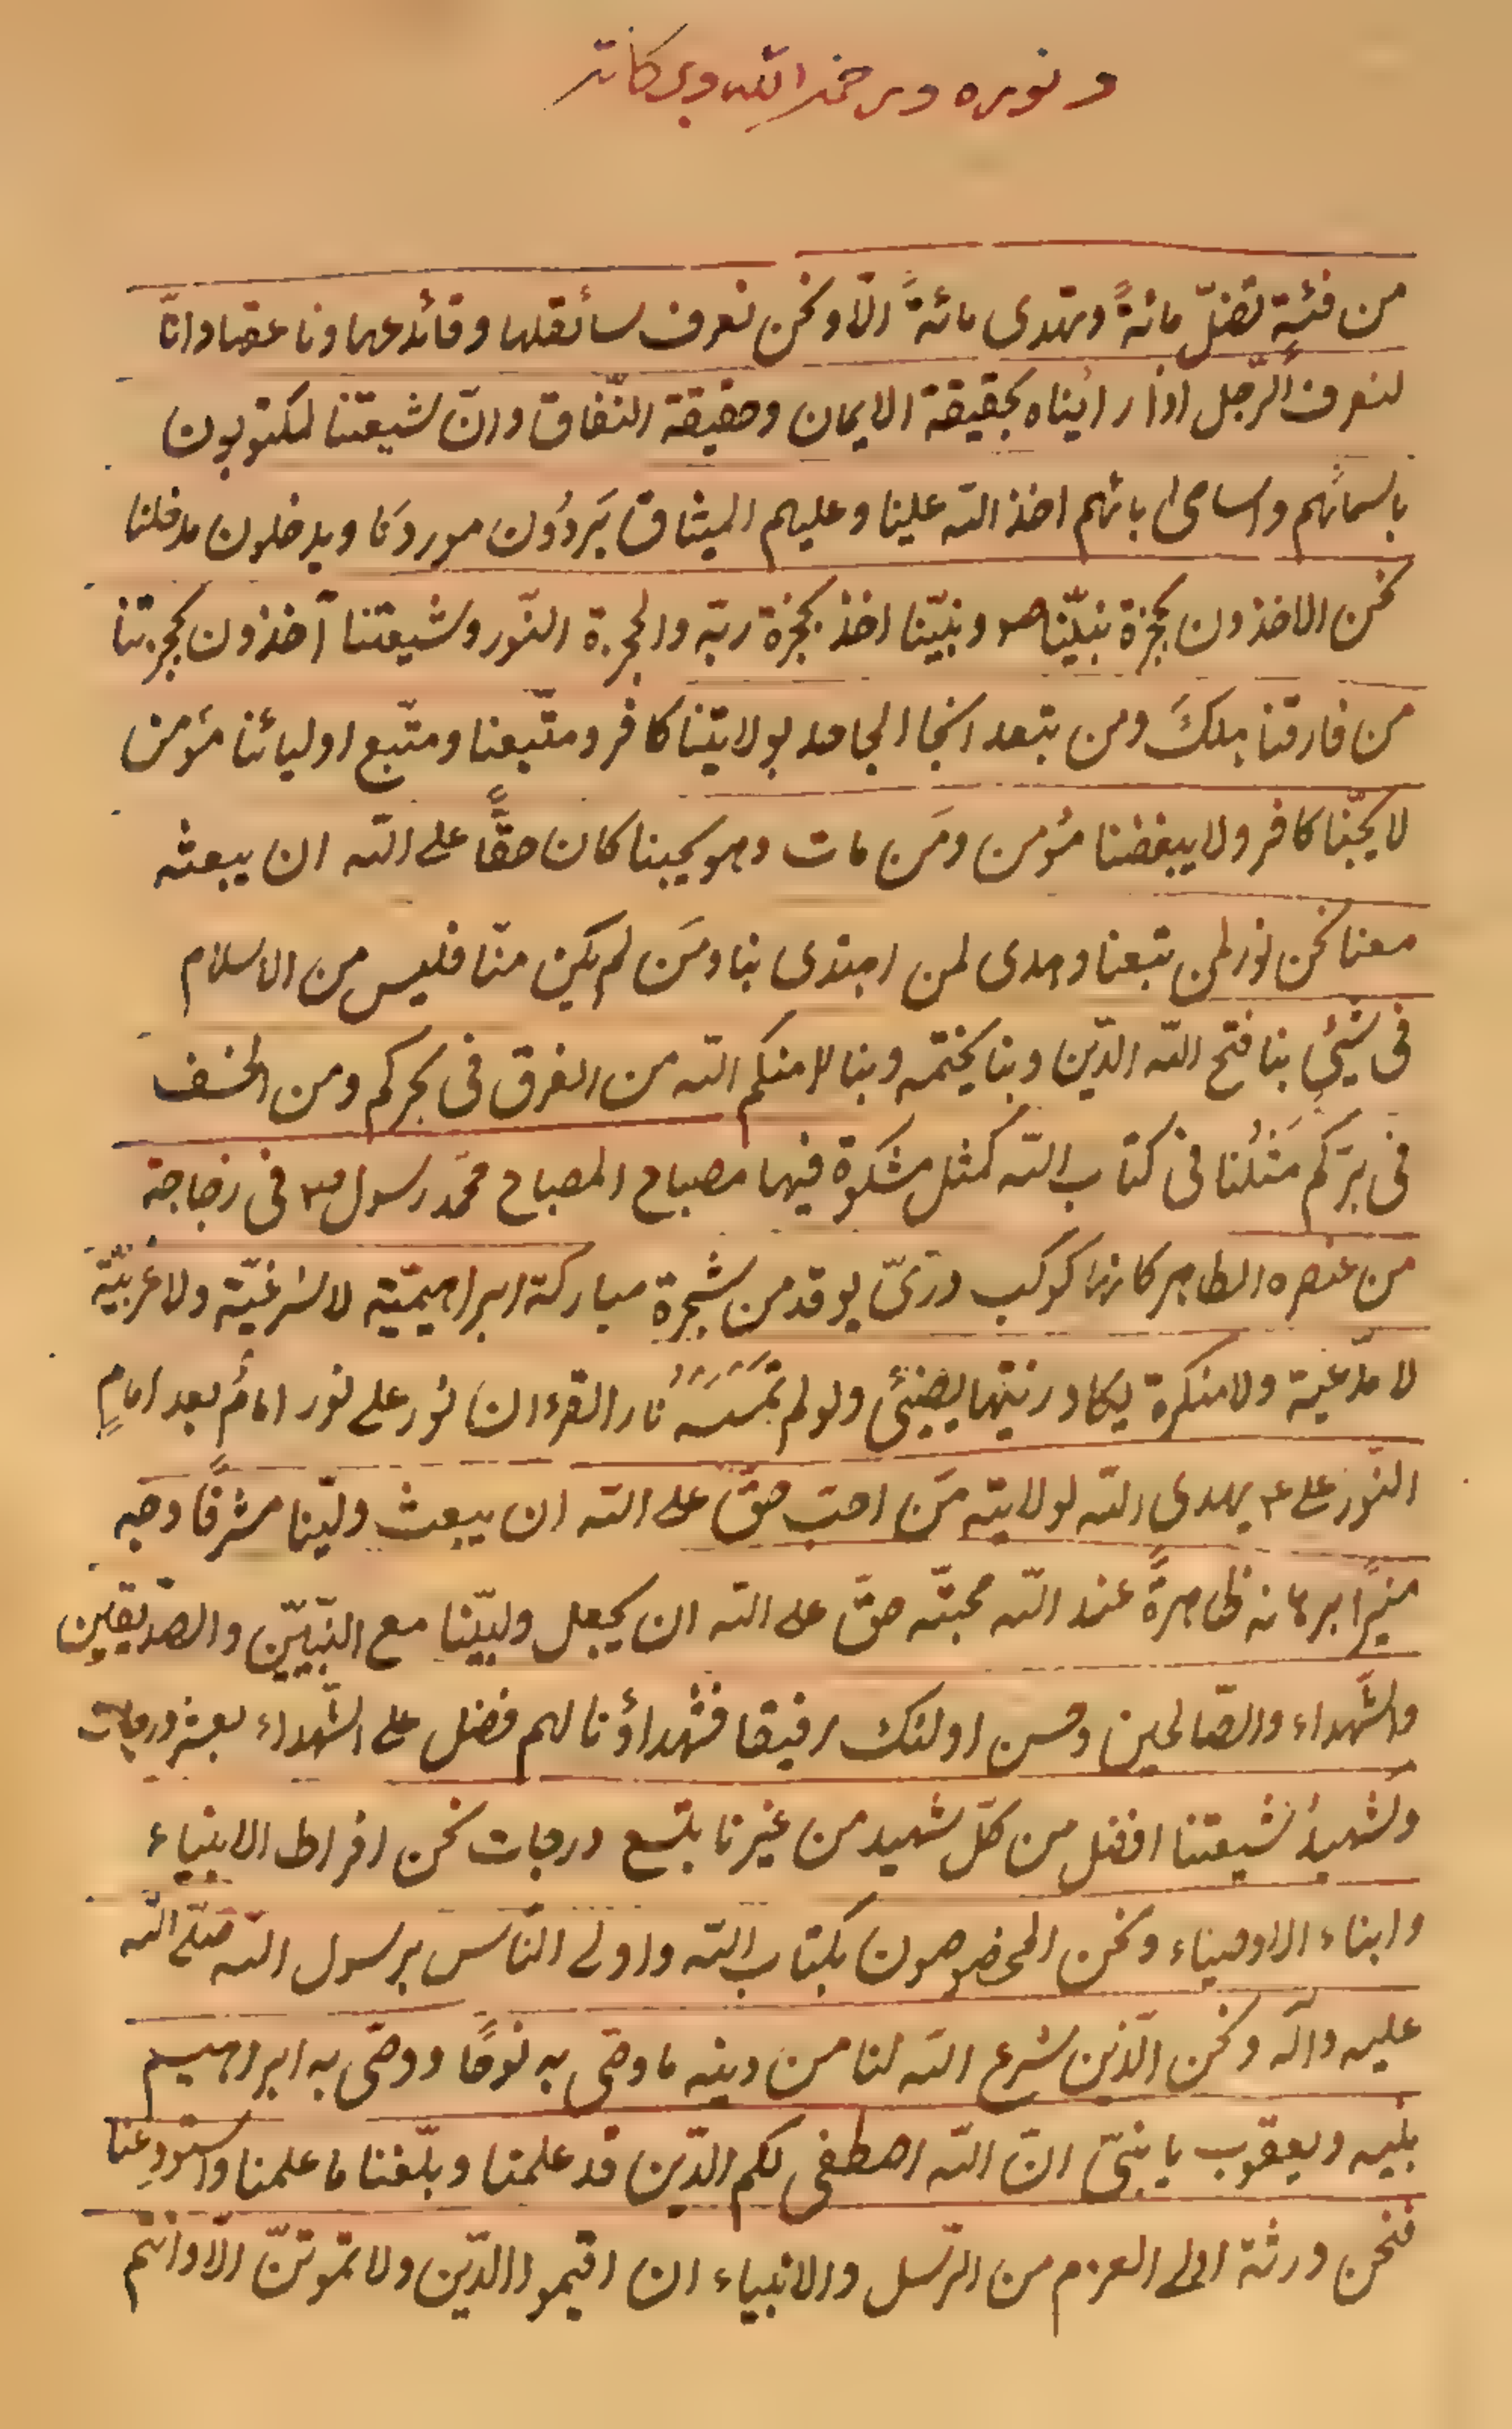 و نوره ورحمة الله وبركاته
من فئةٍ تضلّ مائةً وتهدى مائةً الّا ونحن نعرف سائقها وقائدها وناعقها وانّا
لنعرف الرّجل اذا رايناه بحقيقة الايمان وحقيقة النّفاق وانّ شيعتنا لمكتوبون
باسمائهم واسامى ابائهم اخذ الله علينا وعليهم الميثاق يَردُون موردنا ويدخلون مدخلنا
نحن الاخذون بحجزة نبيّنا ص ونبيّنا اخذ بحجزة ربّه والحجزة النّور وشيعتنا آخذون بحجزتنا
من فارقنا هلكَ ومن تبعنا نجا الجاحد بولايتنا كافر ومتّبعنا ومتّبع اوليائنا مؤمن
لا يحبّنا كافر ولا يبغضنا مؤمن ومَن مات وهو يحبنا كان حقًّا على الله ان يبعثه
معنا نحن نور لمن تبعنا وهدى لمن اهتدى بنا ومَن لم يكن منّا فليس من الاسلام
فى شيئٍ بنا فتح الله الدّين وبنا يختمه وبنا امنكم الله من الغرق فى بحركم ومن الخسف
فى برّكم مَثلُنا فى كتاب الله كمثل مشكوة فيها مصباح المصباح محمّد رسول ص فى زجاجة
من عنصره الطاهر كانها كوكب درّىّ يوقد من شجرة مباركة ابراهيميّة لا شرقيّة ولا غربيّة
لا مدّعية ولا منكرة يكاد زيتها يضيئ ولو لم تمسسه نار القرءان نور على نور امامٌ بعد امامٍ
النّور على ع يهدى الله لولايته مَن احبّ حقّ على الله ان يبعث وليّنا مشرقًا وجهه
منيرًا برهانه ظاهرةً عند الله محبّته حقّ على الله ان يجعل وليّنا مع النّبيّين والصّدّيقين
والشّهداء والصّالحين وحسن اولئك رفيقا فشهداؤنا لهم فضل على الشّهداء بعشر درجات
ولشهيدُ شيعتنا افضل من كلّ شهيد من غيرنا بتسع درجات نحن افراط الانبياء
وابناء الاوصياء ونحن المخصوصون بكتاب الله واولى النّاس برسول الله صلّى الله
عليه وآله ونحن الّذين شرع الله لنا من دينه ما وصّى به نوحًا ووصّى به ابراهيم
بنيه ويعقوب يا بنىّ انّ الله اصطفى لكم الدّين قد علمنا وبلّغنا ما علمنا واستودعنا
فنحن ورثة اولى العزم من الرّسل والانبياء ان اقيموا الدّين ولا تموتنّ الّا وانتم